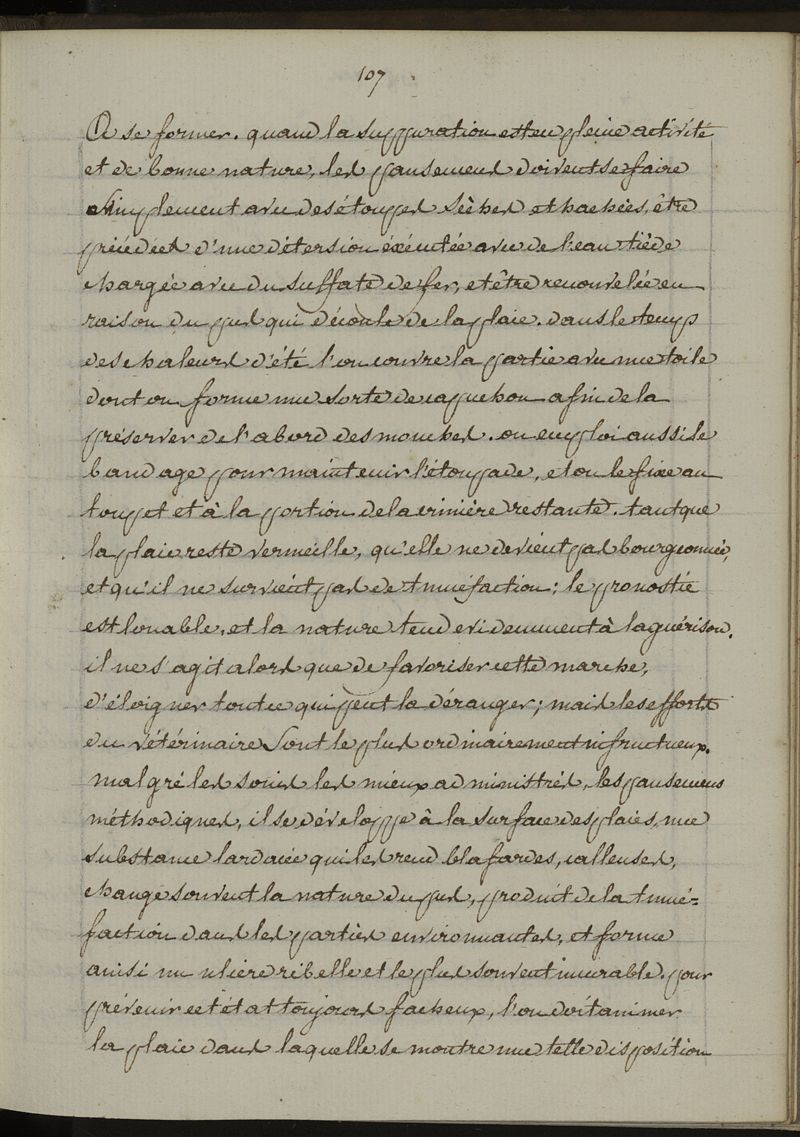 107
A se former. quand la suppuration est en pleine activité
et de bonne nature, les pansemens doivent se faire
simplement avec des étoupes sèches et hachées, être
précédés d'une détersion éxécutée avec de l'eau tiède
chargée avec du sulfate de fer, et être renouvelée en
raison du pus qui découle de la plaie. dans le temps
des chaleurs d'été l'on couvre la partie avec une toile
dont on forme une sorte de capuchon afin de la
préserver de l'abord des mouches. on emploi aussi le
bandage pour maintenir l'étoupade, et on le fixe au
toupet et à la portion de la crinière restante. tant que
la plaie reste vermeille, qu'elle ne devient pas bourgeonnée,
et qu'il ne survient pas de tumefaction; le pronostic
est louable, et la nature tend evidemment à la guérison.
il ne s'agit alors que de favoriser cette marche,
d'éloigner tout ce qui peut la déranger; mais les efforts
du vétérinaire sont le plus ordinairement infructueux.
malgré les soins les mieux administrés, les pansemens
méthodiques, il se développe à la surface des plaies, une
substance lardacée qui les rend blafardes, calleuses,
change souvent la nature du pus, produit de la tumé=
faction dans les parties environnantes, et forme
ainsi un ulcère ribelle et le plus souvent incurable. pour
prévenir cet état toujours facheux, l'on doit animer
la plaie dans laquelle se montre une telle disposition